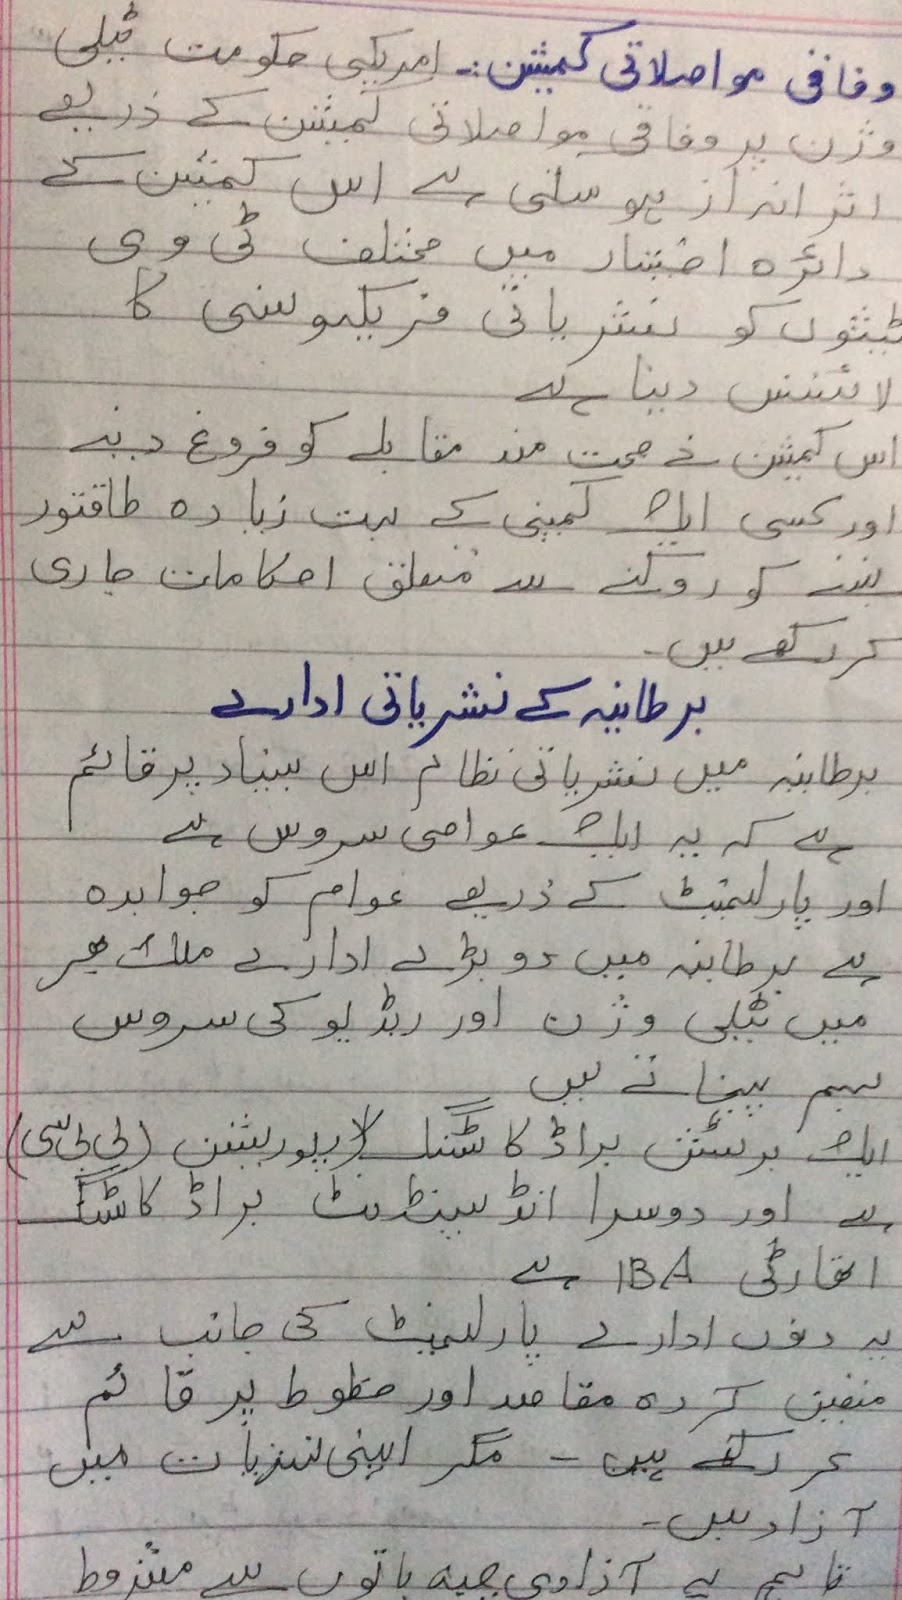 وفاقی مواصلاتی کمیشن:۔ امریکی حکومت ٹیلی
وژن پر وفاقی مواصلاتی کمیشن کے ذریعے
اثر انداز ہو سکتی ہے اس کمیشن کے
دائرہ اختیار میں مختلف ٹی وی
کو نشریاتی فریکیوینسی کا
لائسنس دینا ہے
اس کمیشن نے صحت مند مقابلے کو فروغ دینے
اور کسی ایک کمپنی کے بہت زیادہ طاقتور
بننے کو روکنے سے متعلق احکامات جاری
کر رکھے ہیں۔
برطانیہ کے نشریاتی ادارے
برطانیہ میں نشریاتی نظام اس بنیاد پر قائم
ہے کہ یہ ایک عوامی سروس ہے
اور پارلیمنٹ کے ذریعے عوام کو جوابدہ
ہے برطانیہ میں دو بڑے ادارے ملک بھر
میں ٹیلی وژن اور ریڈیو کی سروس
بہم پہنچاتے ہیں
ایک برٹش براڈ کاسٹنگ کارپوریشن (بی بی سی)
ہے اور دوسرا انڈیپینڈینٹ براڈ کاسٹنگ
اتھارٹی IBA ہے
یہ دونوں ادارے پارلیمنٹ کی جانب سے
متعین کردہ مقاصد اور خطوط پر قائم
کر رکھے ہیں ۔ مگر اپنی نشریات میں
آزاد ہیں۔
تاہم یہ آزادی چند باتوں سے مشروط